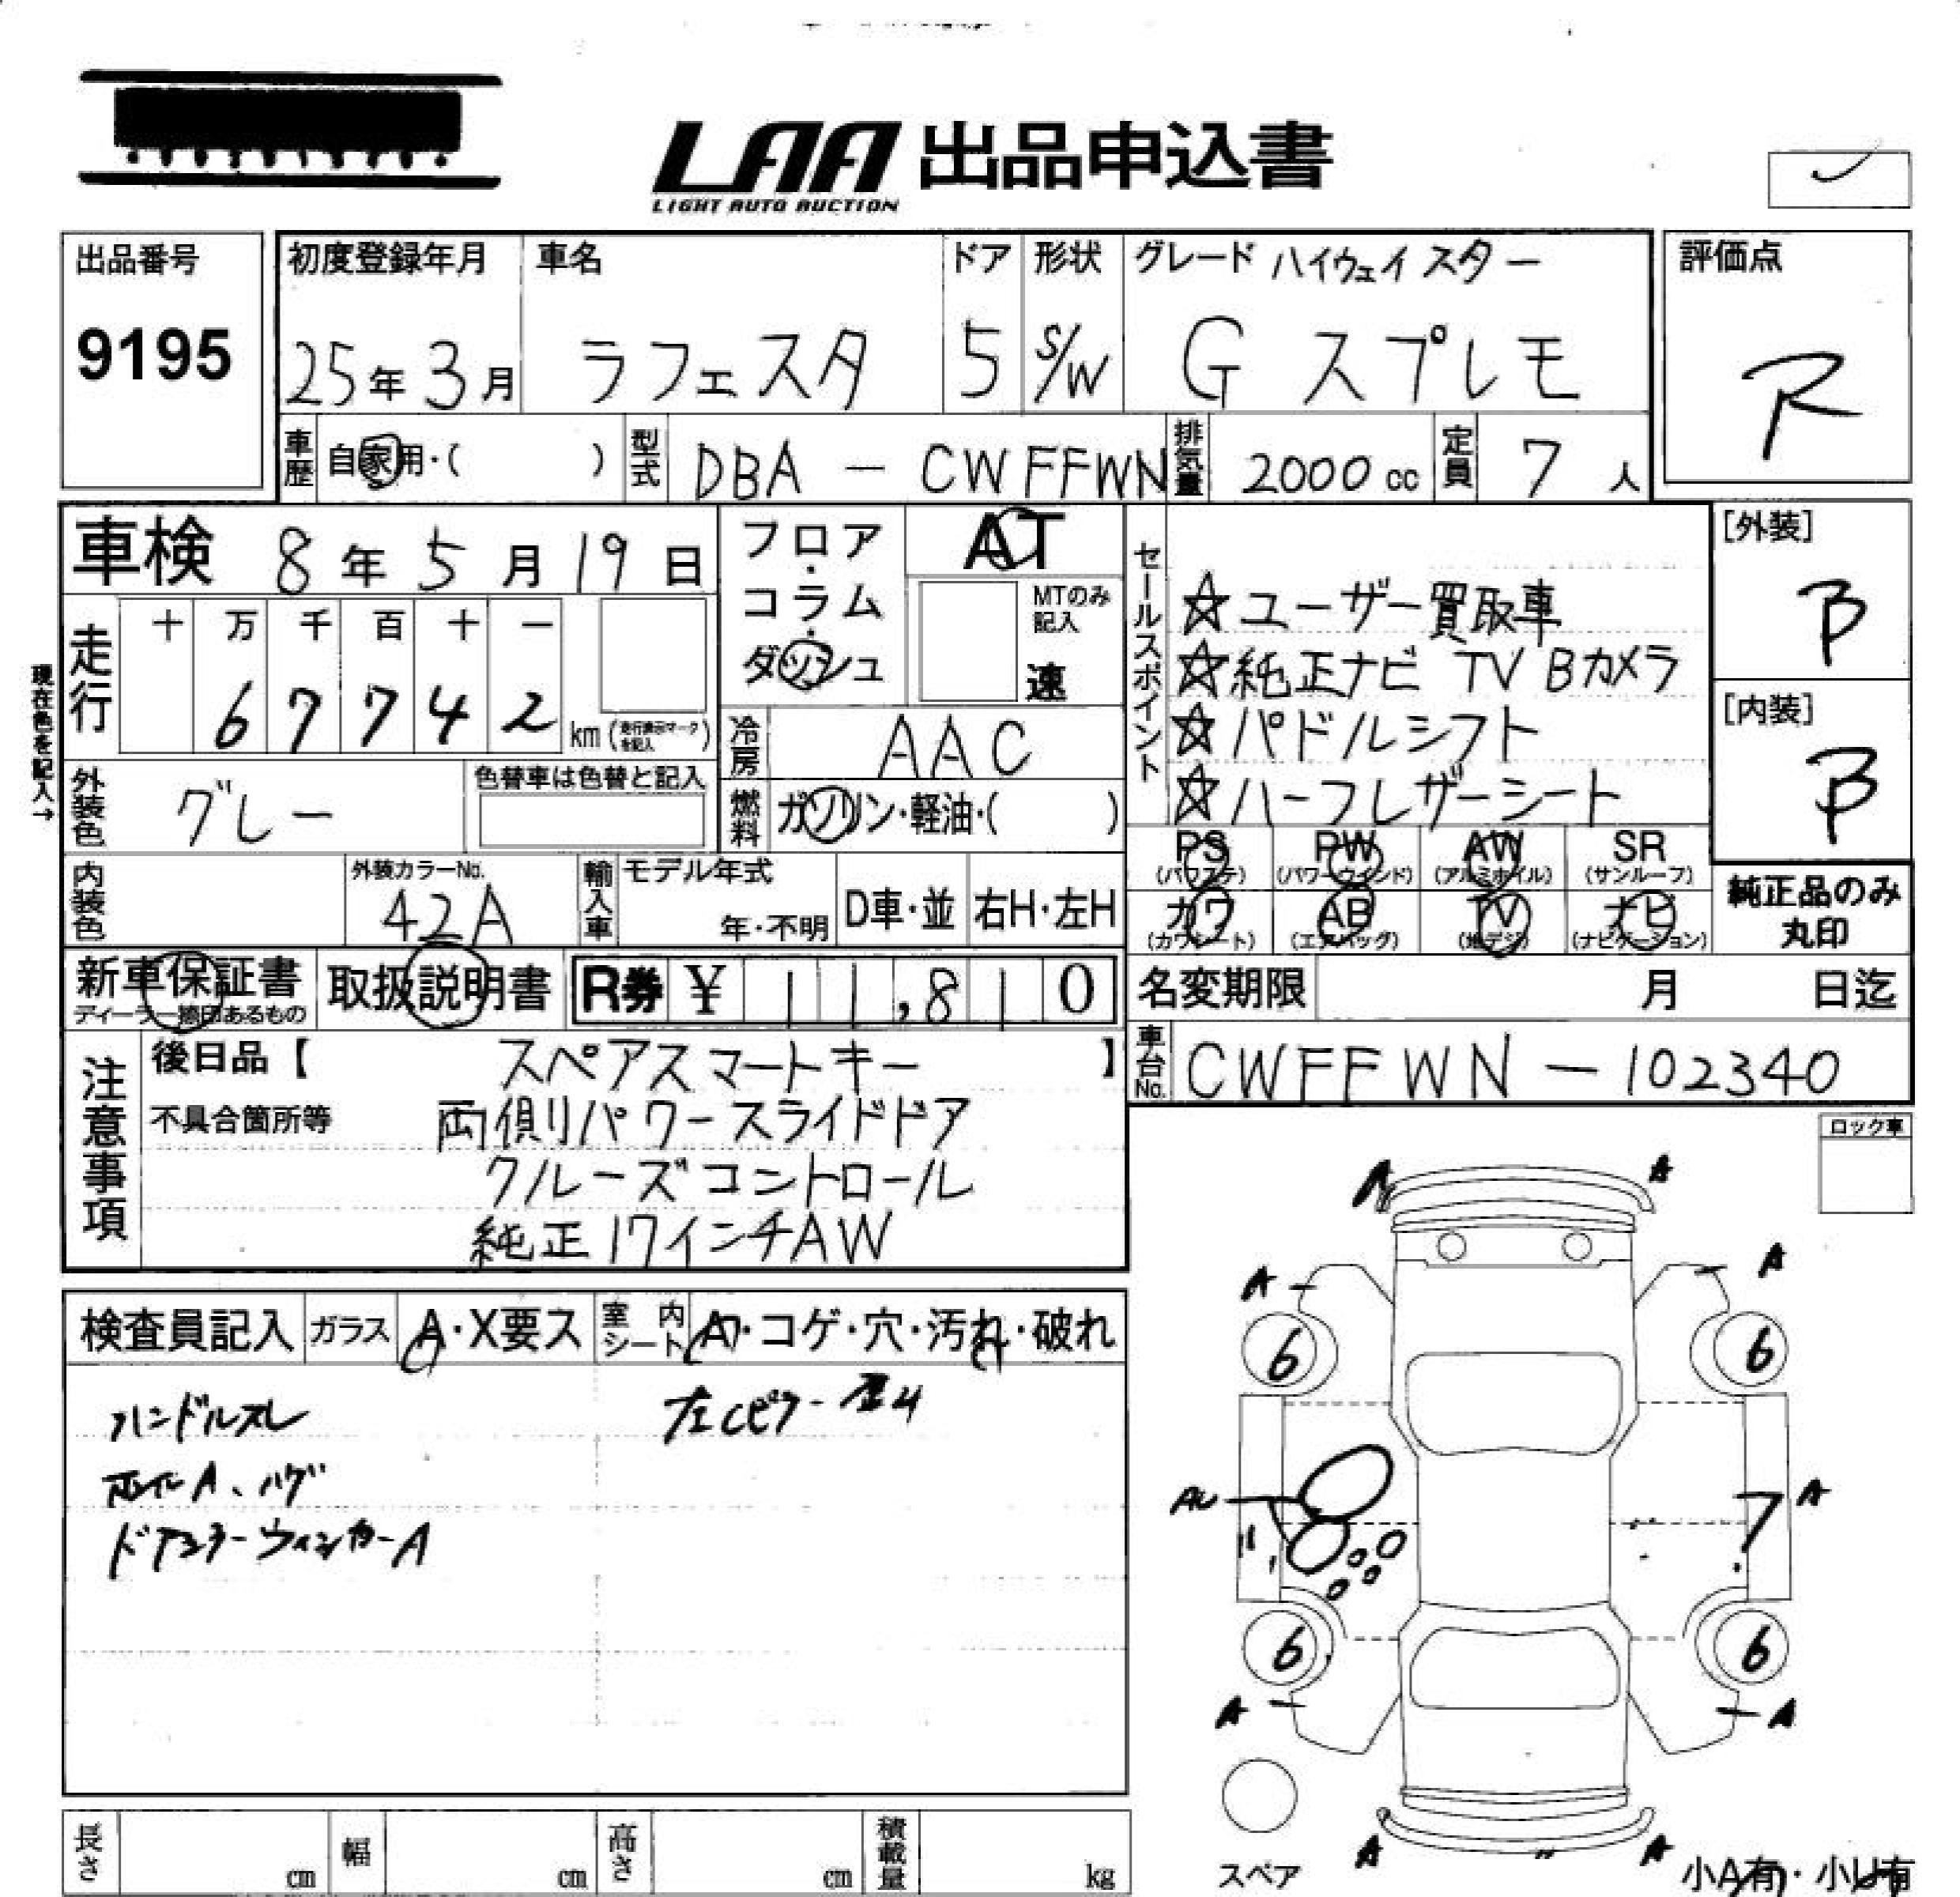 LAA 出品申込書
LIGHT AUTO AUCTION
出品番号
9195
初度登録年月
25年3月
車名
ラフェスタ
ドア
5
形状
S/W
グレード ハイウェイスター
G スプレモ
評価点
R
車歴 自家用・( )
型式 DBA - CWFFWN
排気量 2000 cc
定員 7 人
車検 8年5月19日
フロア・コラム・ダッシュ
AT
MTのみ記入
速
走行
十 万 千 百 十 一
6 7 7 4 2 km
現在色を記入→
冷房 AAC
燃料 ガソリン・軽油・( )
外装色 グレー
色替車は色替と記入
内装色
外装カラーNo.
42A
輸入車
モデル年式
年・不明
D車・並
右H・左H
セールスポイント
☆ユーザー買取車
☆純正ナビ TV Bカメラ
☆パドルシフト
☆ハーフレザーシート
[外装]
B
[内装]
B
PS (パワステ)
PW (パワーウインド)
AW (アルミホイル)
SR (サンルーフ)
カワ (カワシート)
AB (エアバッグ)
TV (地デジ)
ナビ (ナビゲーション)
純正品のみ
丸印
新車保証書
ディーラー捺印あるもの
取扱説明書
R券 ¥ 11,810
名変期限 月 日迄
車台No. CWFFWN-102340
注意事項
後日品【 スペアスマートキー 】
不具合箇所等 両側パワースライドドア
クルーズコントロール
純正17インチAW
ロック車
検査員記入
ガラス A・X要ス
室内シート A・コゲ・穴・汚れ・破れ
ハンドルスレ
左Cピラー
ホイルA、ハゲ
ドアミラーウィンカーA
A A
A A
6 6
AU
A
6 6
A A
A A
スペア
小A有・小U有
長さ cm
幅 cm
高さ cm
積載量 kg